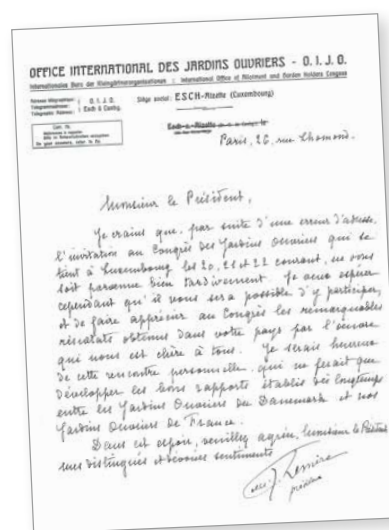 OFFICE INTERNATIONAL DES JARDINS OUVRIERS - O. I. J. O.
Internationales Büro der Kleingärtnerorganisationen : International Office of Allotment and Garden Holders Leagues
Adresse télégraphique : O. I. J. O.
Telegrammadresse : Esch s. Contig.
Telegraphic Address :
Siège social : ESCH-Alzette (Luxembourg)
Esch-s.-Alzette
Paris, 26, rue Lhomond.
Monsieur le Président,
Je crains que, par suite d'une erreur d'adresse,
l'invitation au Congrès des Jardins Ouvriers qui se
tient à Luxembourg les 20, 21 et 22 courant, ne vous
soit parvenue bien tardivement. Je veux espérer
cependant qu'il vous sera possible d'y participer,
et de faire apprécier au Congrès les remarquables
résultats obtenus dans votre pays par l'oeuvre
qui nous est chère à tous. Je serais heureux
de cette rencontre personnelle, qui ne ferait que
développer les bons rapports établis dès longtemps
entre les Jardins Ouvriers du Danemark et nos
Jardins Ouvriers de France.
Dans cet espoir, veuillez agréer, Monsieur le Président
mes distingués et dévoués sentiments
J. Lemire
président